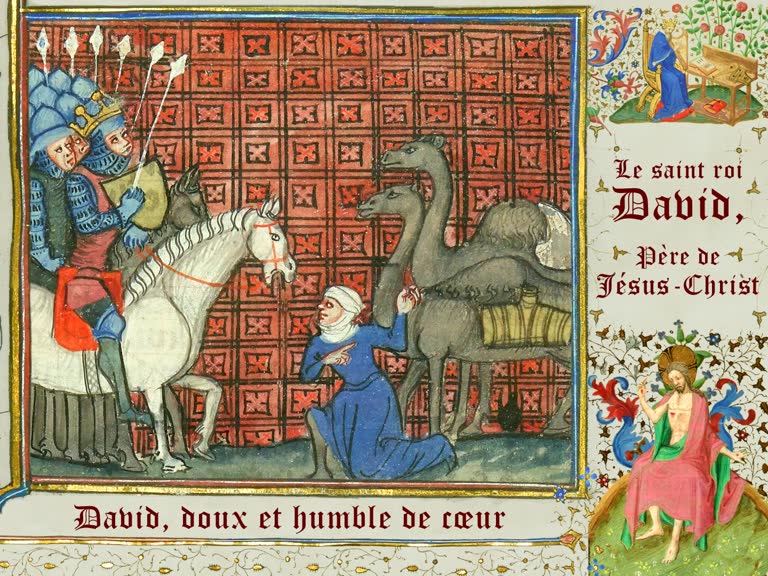 Le saint roi
David,
Père de
Jésus-Christ
David, doux et humble de cœur